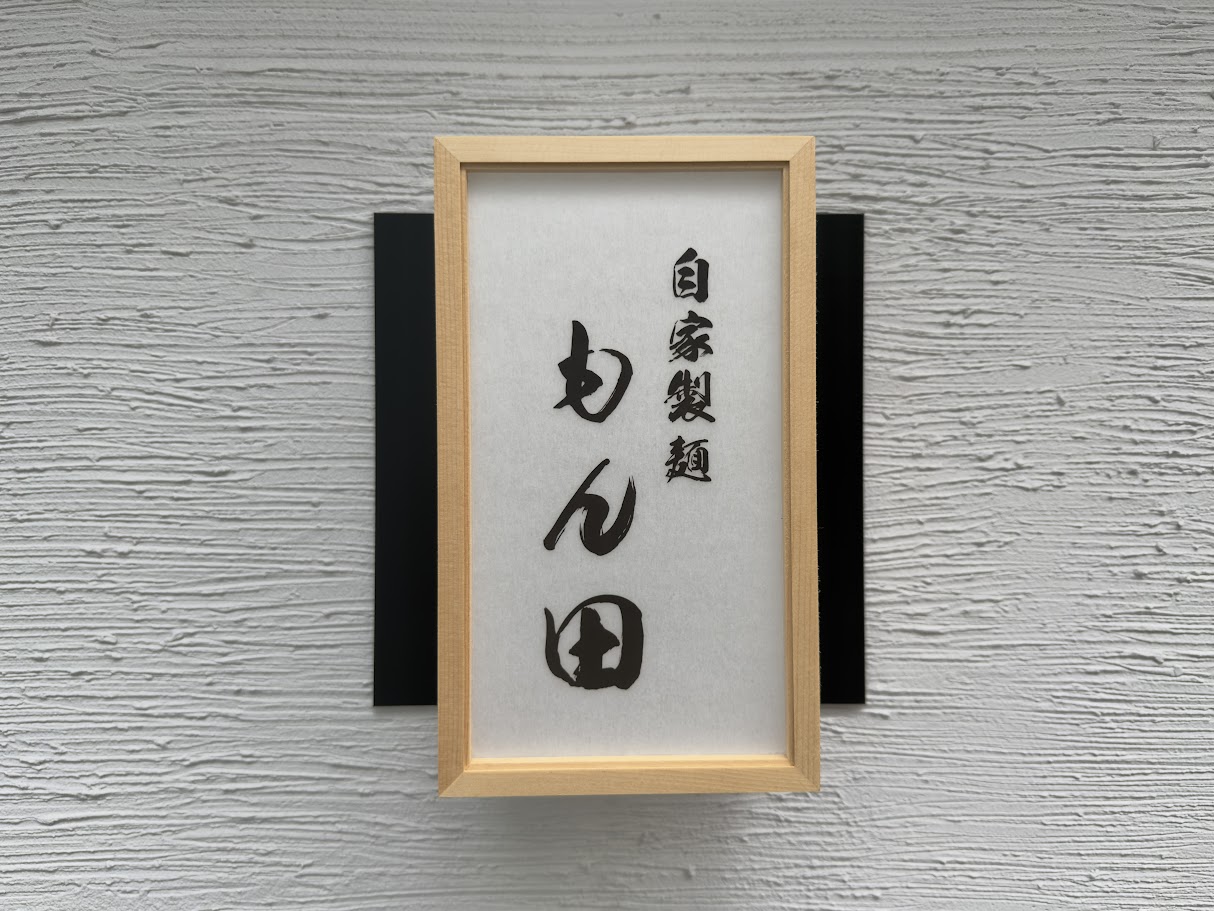 自家製麺
もん田